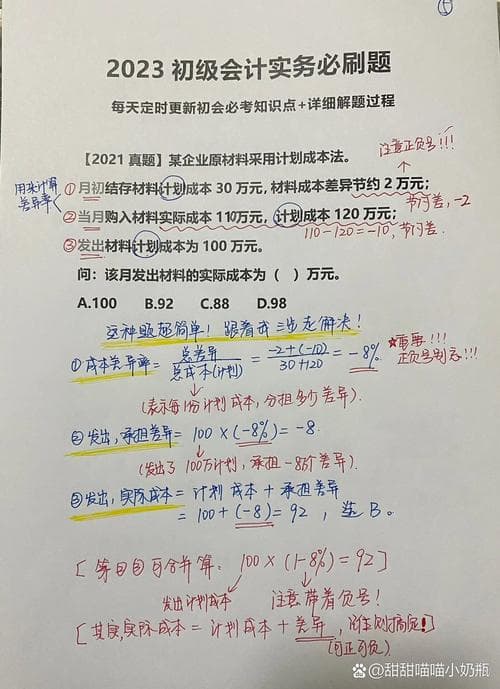 ⑤
2023 初级会计实务必刷题
每天定时更新初会必考知识点+详细解题过程
【2021 真题】某企业原材料采用计划成本法。
注意正负号!!!
用来计算
差异率
①月初结存材料计划成本 30 万元, 材料成本差异节约 2 万元;
节约差, -2
②当月购入材料实际成本 110万元, 计划成本 120 万元;
110-120=-10, 节约差.
③发出材料计划成本为 100 万元。
问: 该月发出材料的实际成本为 ( ) 万元。
A.100 B.92 C.88 D.98
这种题超简单! 跟着我三步走解决!
①成本差异率= 总差异/总成本(计划) = -2+(-10)/30+120 = -8%
★重要!!!
正负号别忘!!
(表示每1份计划成本, 分担多少差异).
②发出, 承担差异= 100×(-8%)=-8.
(发出了 100万计划, 承担 -8万个差异).
③发出, 实际成本= 计划成本+承担差异
= 100+(-8)=92, 选 B.
[ 等式②③可合并算: 100×(1-8%)=92]
发出计划成本 注意带着负号!
[其实,实际成本=计划成本+差异, 准则搞定!]
(可正可负)
@甜甜喵喵小奶瓶